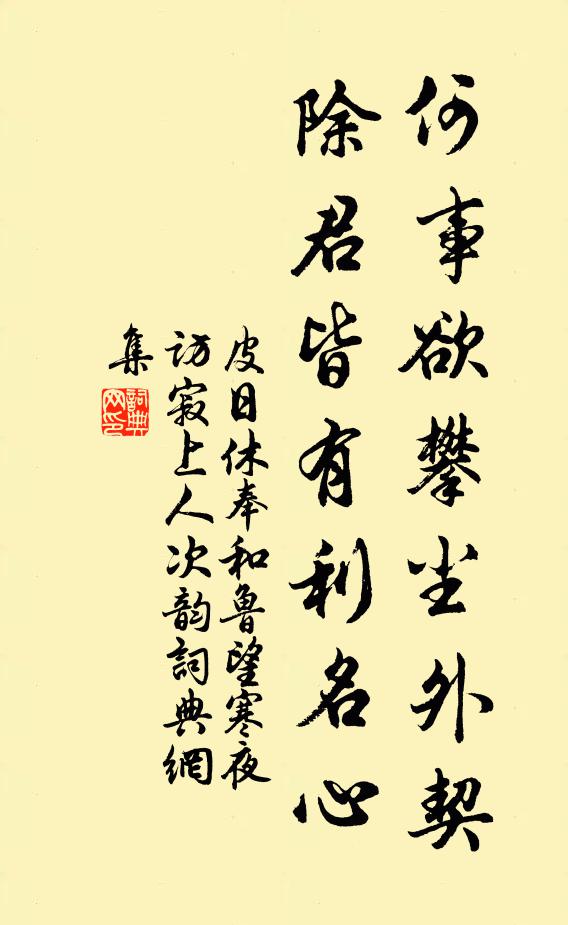 何事欲攀尘外契
除君皆有利名心
皮日休奉和魯望寒夜
訪寂上人次韵詞典網
集
詞典
网印